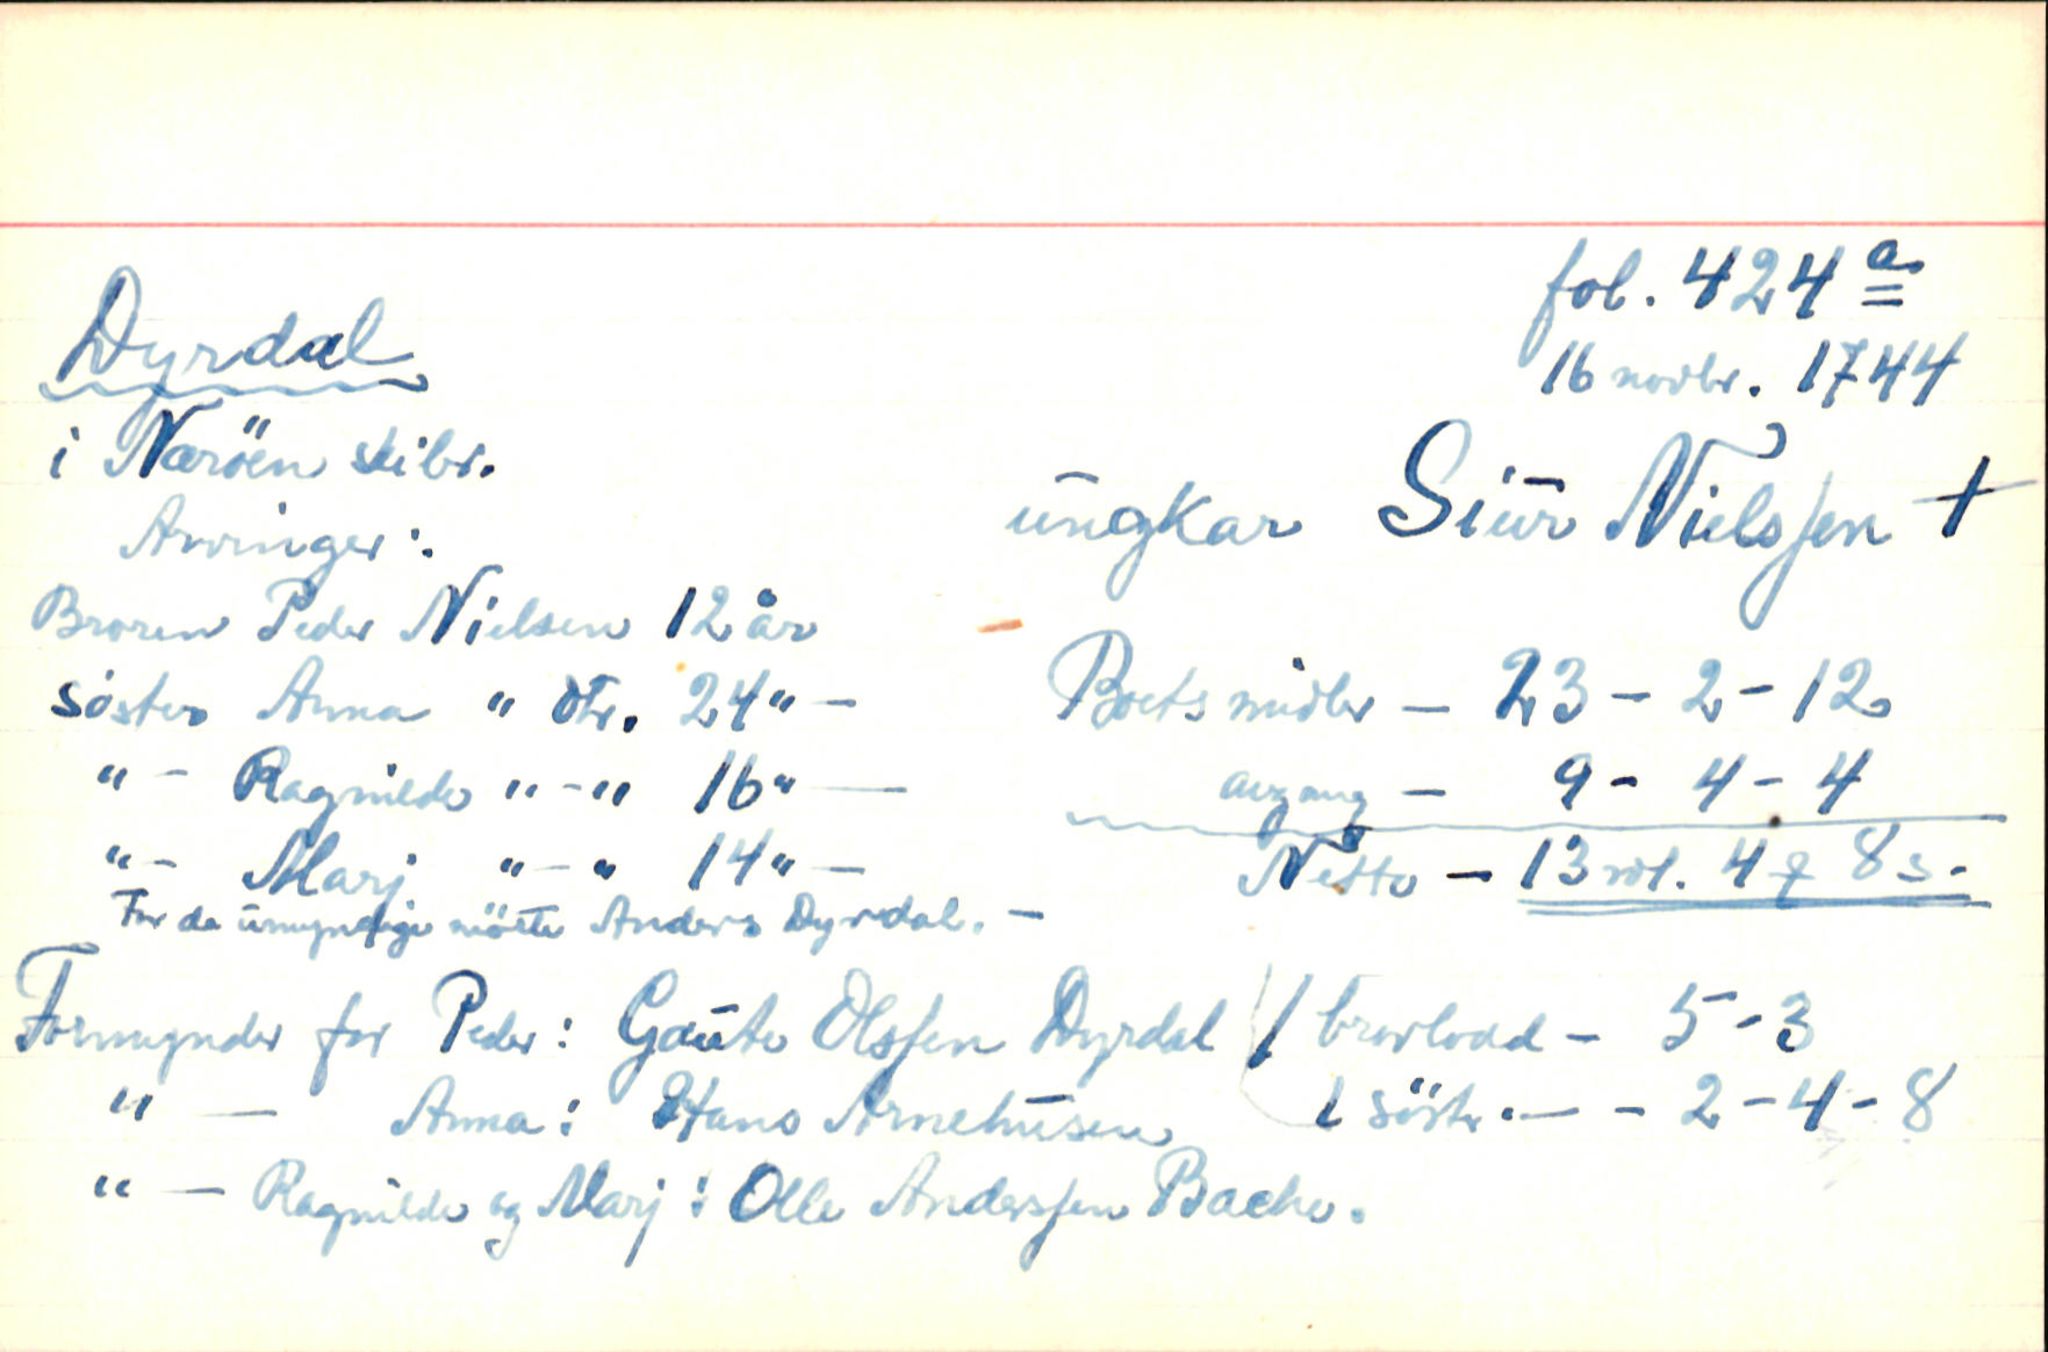 fol. 424 a
16 novbr. 1744
Dyrdal
i Næröen skibr.
ungkar Siur Nielssen +
Arvinger:
Broren Peder Nielsen 12 år
söster Anna " dtr. 24 " —
" - Ragnilde " - " 16 " —
" - Marj " - " 14 " —
For de umyndige mötte Anders Dyrdal. —
Boets midler — 23 - 2 - 12
avgang — 9 - 4 - 4
Netto — 13 rdl. 4 8 s.
Formynder for Peder: Gaute Olssen Dyrdal
" — Anna: Hans Arnetusen
" — Ragnilde og Marj: Olle Anderssen Bache.
1 brorlodd - 5 - 3
1 söstr. — - 2 - 4 - 8